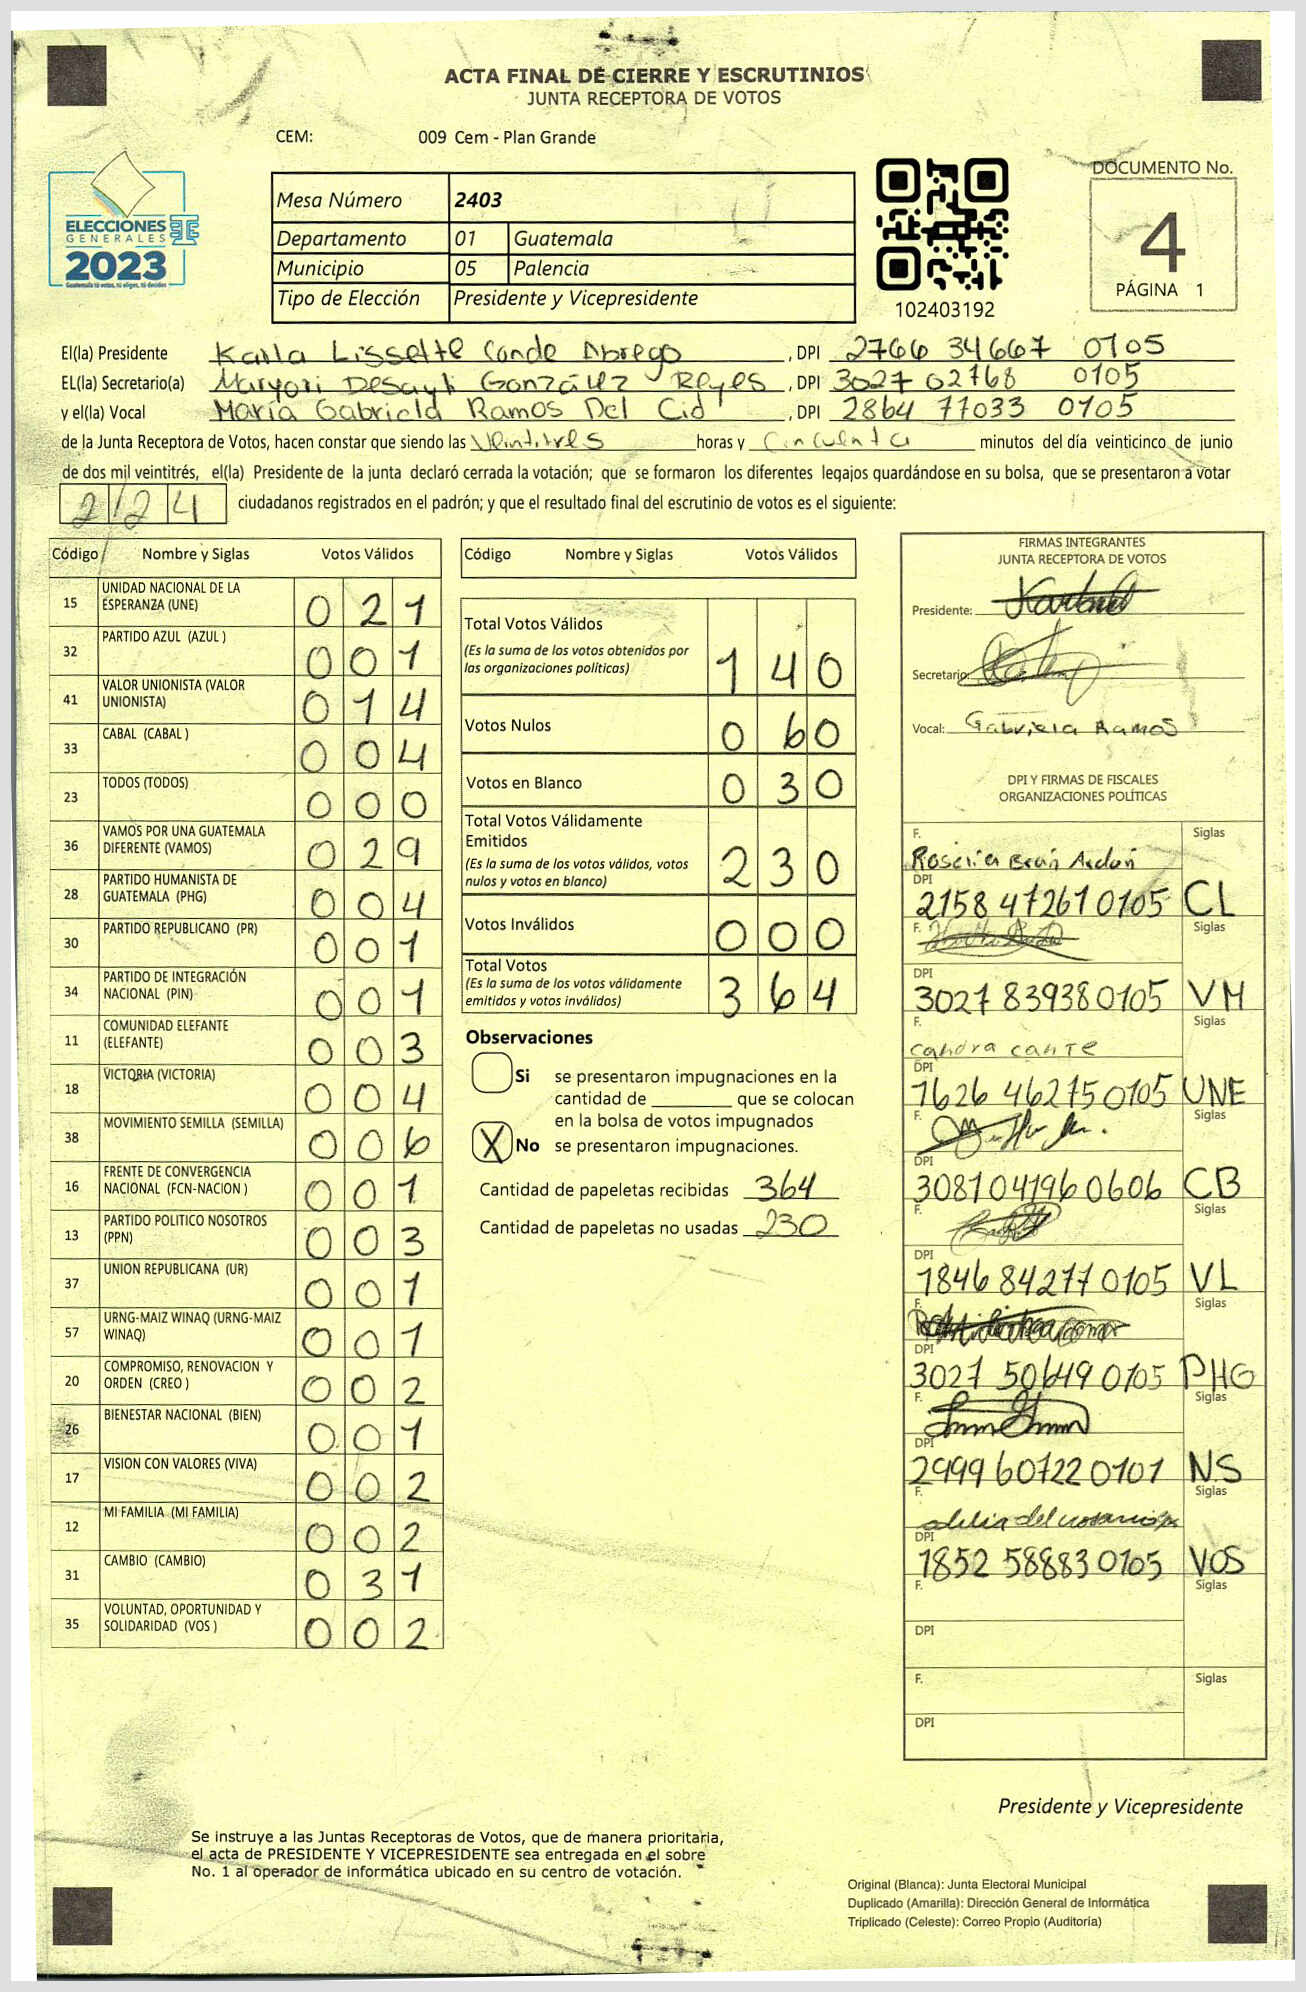 ACTA FINAL DE CIERRE Y ESCRUTINIOS
JUNTA RECEPTORA DE VOTOS
CEM: 009 Cem - Plan Grande
ELECCIONES
GENERALES
2023
Guatemala tú votas, tú eliges, tú decides
Mesa Número 2403
Departamento 01 Guatemala
Municipio 05 Palencia
Tipo de Elección Presidente y Vicepresidente
102403192
DOCUMENTO No.
4
PÁGINA 1
El(la) Presidente Karla Lissette Conde Abrego, DPI 2766 34667 0105
EL(la) Secretario(a) Maryori Desayli González Reyes, DPI 3027 02768 0105
y el(la) Vocal María Gabriela Ramos Del Cid, DPI 2864 77033 0105
de la Junta Receptora de Votos, hacen constar que siendo las Veintitres horas y Cincuenta minutos del día veinticinco de junio
de dos mil veintitrés, el(la) Presidente de la junta declaró cerrada la votación; que se formaron los diferentes legajos guardándose en su bolsa, que se presentaron a votar
224 ciudadanos registrados en el padrón; y que el resultado final del escrutinio de votos es el siguiente:
Código Nombre y Siglas Votos Válidos
15 UNIDAD NACIONAL DE LA ESPERANZA (UNE) 021
32 PARTIDO AZUL (AZUL ) 001
41 VALOR UNIONISTA (VALOR UNIONISTA) 014
33 CABAL (CABAL ) 004
23 TODOS (TODOS) 000
36 VAMOS POR UNA GUATEMALA DIFERENTE (VAMOS) 029
28 PARTIDO HUMANISTA DE GUATEMALA (PHG) 004
30 PARTIDO REPUBLICANO (PR) 001
34 PARTIDO DE INTEGRACIÓN NACIONAL (PIN) 001
11 COMUNIDAD ELEFANTE (ELEFANTE) 003
18 VICTORIA (VICTORIA) 004
38 MOVIMIENTO SEMILLA (SEMILLA) 006
16 FRENTE DE CONVERGENCIA NACIONAL (FCN-NACION ) 001
13 PARTIDO POLITICO NOSOTROS (PPN) 003
37 UNION REPUBLICANA (UR) 001
57 URNG-MAIZ WINAQ (URNG-MAIZ WINAQ) 001
20 COMPROMISO, RENOVACION Y ORDEN (CREO ) 002
26 BIENESTAR NACIONAL (BIEN) 001
17 VISION CON VALORES (VIVA) 002
12 MI FAMILIA (MI FAMILIA) 002
31 CAMBIO (CAMBIO) 031
35 VOLUNTAD, OPORTUNIDAD Y SOLIDARIDAD (VOS ) 002
Código Nombre y Siglas Votos Válidos
Total Votos Válidos
(Es la suma de los votos obtenidos por las organizaciones políticas) 140
Votos Nulos 060
Votos en Blanco 030
Total Votos Válidamente Emitidos
(Es la suma de los votos válidos, votos nulos y votos en blanco) 230
Votos Inválidos 000
Total Votos
(Es la suma de los votos válidamente emitidos y votos inválidos) 364
Observaciones
Si se presentaron impugnaciones en la
cantidad de ________ que se colocan
en la bolsa de votos impugnados
X No se presentaron impugnaciones.
Cantidad de papeletas recibidas 364
Cantidad de papeletas no usadas 230
FIRMAS INTEGRANTES
JUNTA RECEPTORA DE VOTOS
Presidente:
Secretario:
Vocal: Gabriela Ramos
DPI Y FIRMAS DE FISCALES
ORGANIZACIONES POLÍTICAS
F. Siglas
DPI 2158 47261 0105 CL
F. Siglas
DPI 3027 83938 0105 VM
F. Siglas
candra cante
DPI 1626 46275 0105 UNE
F. Siglas
DPI 3081 04196 0606 CB
F. Siglas
DPI 1846 84277 0105 VL
F. Siglas
DPI 3027 50649 0105 PHG
F. Siglas
DPI 2999 60722 0101 NS
F. Siglas
DPI 1852 58883 0105 VOS
F. Siglas
DPI
F. Siglas
DPI
Presidente y Vicepresidente
Se instruye a las Juntas Receptoras de Votos, que de manera prioritaria,
el acta de PRESIDENTE Y VICEPRESIDENTE sea entregada en el sobre
No. 1 al operador de informática ubicado en su centro de votación.
Original (Blanca): Junta Electoral Municipal
Duplicado (Amarilla): Dirección General de Informática
Triplicado (Celeste): Correo Propio (Auditoría)